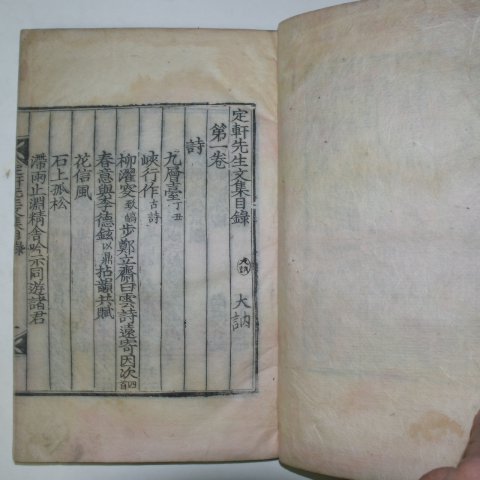 定軒先生文集目錄 大訥
第一卷
詩
九層臺丁丑
峽行作古詩
柳灑㝯致皜步鄭立齋白雲詩遠寄因次四首
春意與李德鉉以鼎拈韻共賦
花信風
石上孤松
滯雨止淵精舍吟示同遊諸君
定軒先生文集目錄